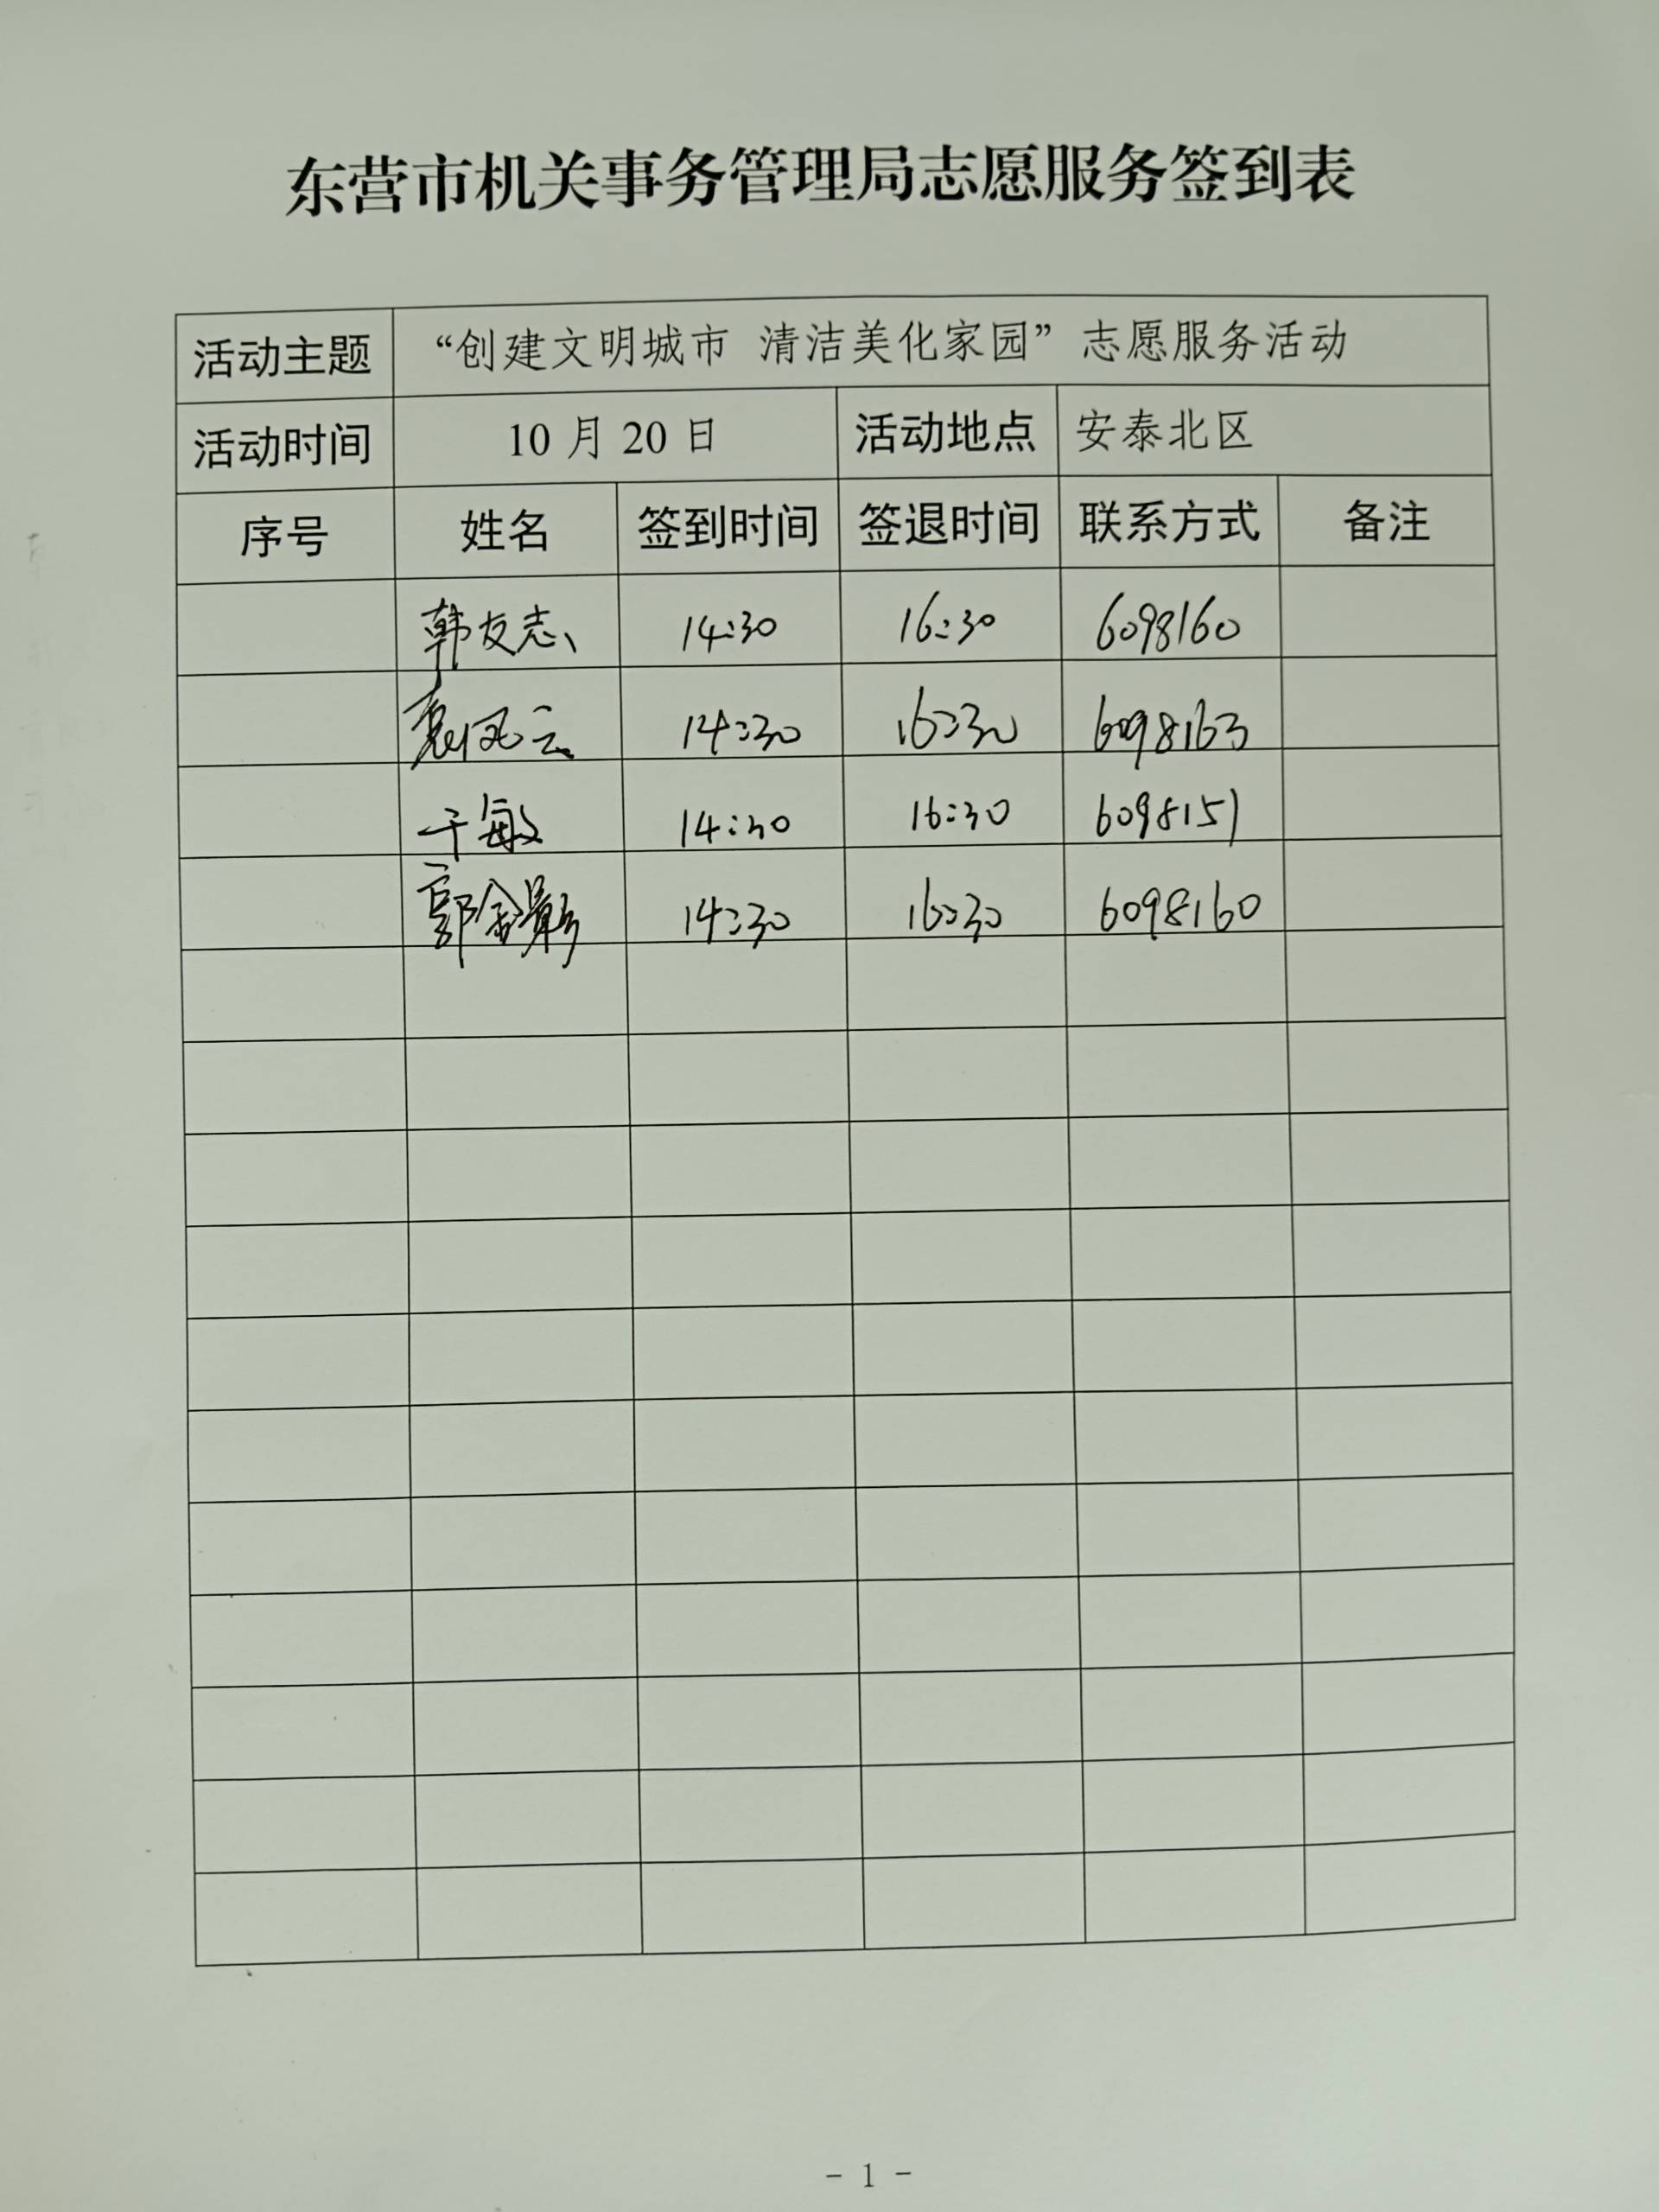 东营市机关事务管理局志愿服务签到表
活动主题 “创建文明城市 清洁美化家园”志愿服务活动
活动时间 10月20日 活动地点 安泰北区
序号 姓名 签到时间 签退时间 联系方式 备注
韩友志 14:30 16:30 6098160
风云 14:30 16:30 6098163
于敏 14:30 16:30 6098151
郭金影 14:30 16:30 6098160
- 1 -